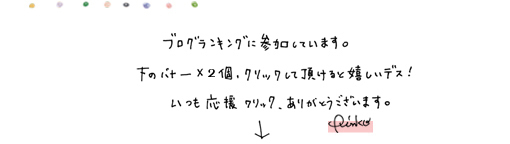 ブログランキングに参加しています。
下のバナー×2個、クリックして頂けると嬉しいデス!
いつも応援クリック、ありがとうございます。
Rinko
↓